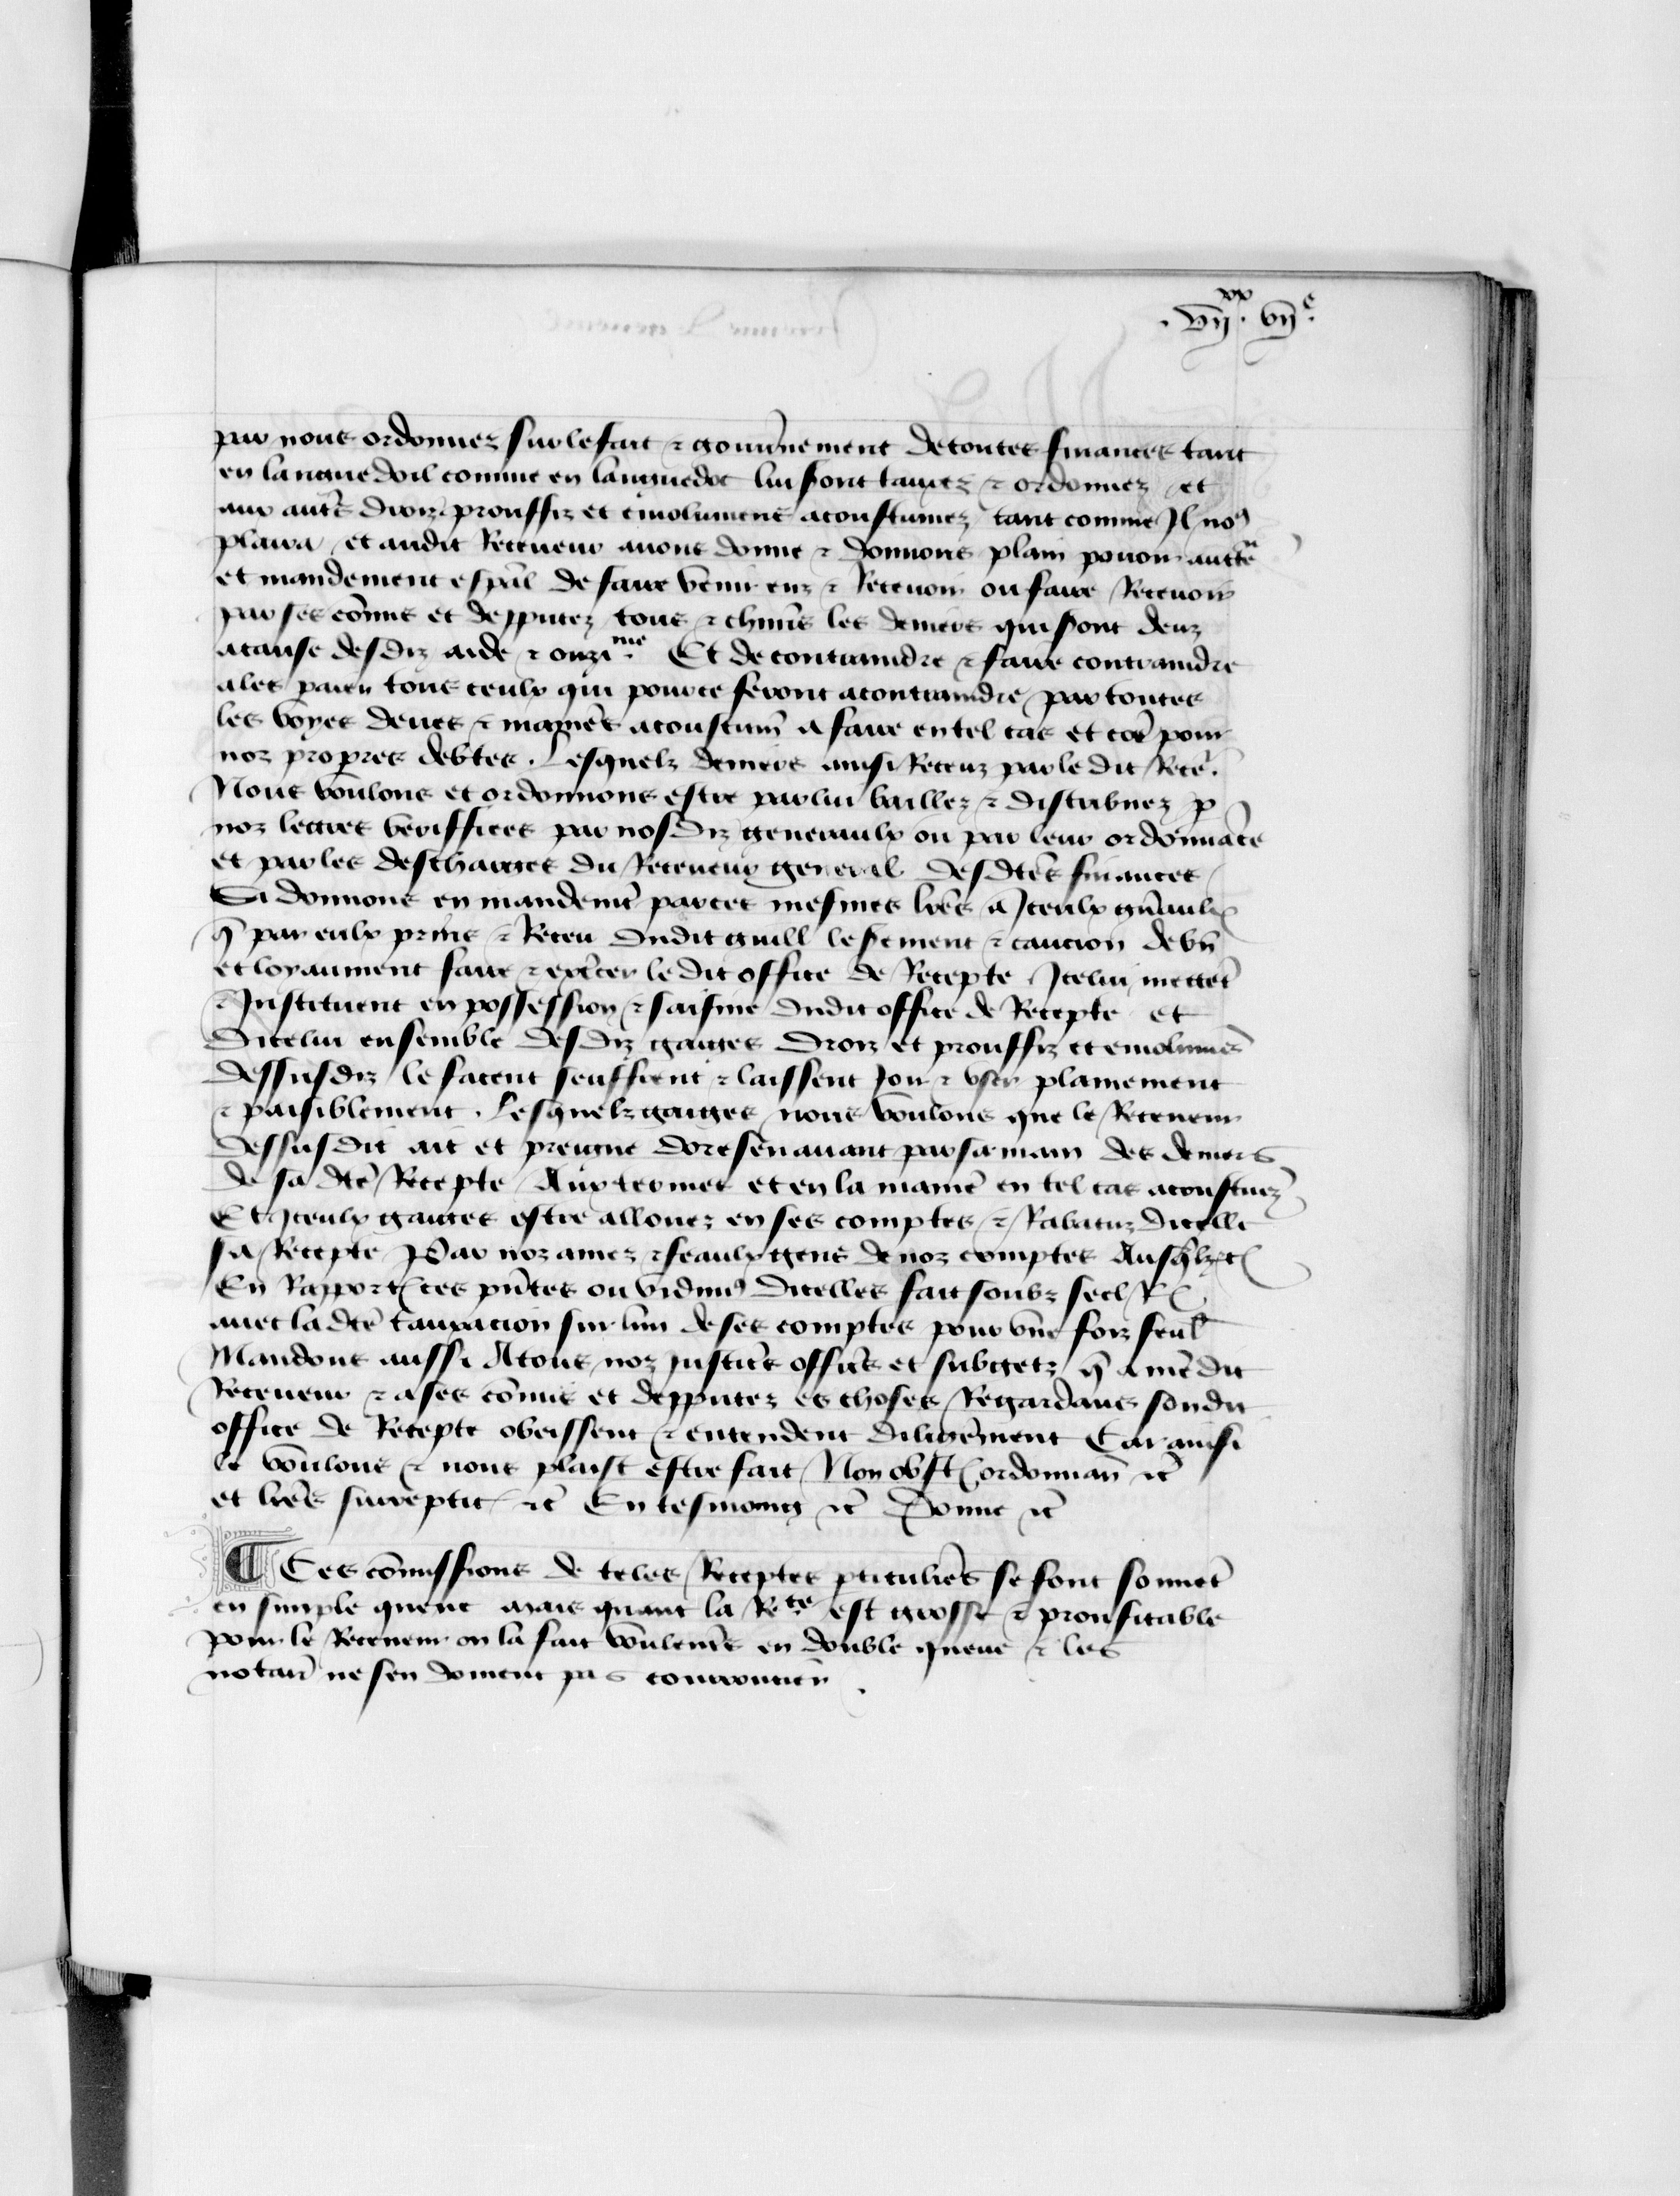 .vij.xx vije.
par nous ordonnez sur le fait ⁊ gouuẽnement de toutes finances tant
en langue doil comme en languedoc lui sont tauxez ⁊ ordonnez et
aux autr̃s droiz prouffiz et emolumens acoustumez tant comme Il noꝰ
plaira et audit Receueur auons donne ⁊ donnons plain pouoir auctẽ
et mandement esp̃al de faire venir ens ⁊ Receuoir ou faire Receuoir
par ses cõmis et depputez tous ⁊ chũns les deniers qui sont deuz
a cause desdiz aide ⁊ onzime Et de contraindre ⁊ faire contraindre
a les paier tous ceulx qui pour ce seront a contraindre par toutes
les voyes deues ⁊ manier̃s acoustum̃ a faire en tel cas et cõe pour
noz propres debtes . Lesquelz deniers ainsi Receuz par le dit Recẽ.
Nous voulons et ordonnons estre par lui baillez ⁊ distribuez p
noz lectres veriffiees par nosdiz generaulx ou par leur ordonnãce
et par les descharges du Receueur general desdc̃es finances
Si donnons en mandemt̃ par ces mesmes lr̃es a Iceulx gñaulx
q̃ par eulx prins ⁊ Receu dudit guill le ẽment ⁊ caucion de bñ
et loyaument faire ⁊ ex̃cer le dit office de Recepte Icelui mettẽt
⁊ Instituent en possession ⁊ saisine dudit office de Recepte et
dicelui ensemble desdiz gaiges droiz et prouffiz et emolumẽs
dessusdiz le facent seuffrent ⁊ laissent Joir ⁊ vser plainement
⁊ paisiblement . Lesquelz gaiges nous voulons que le Receueur
dessusdit ait et preigne doresenauant par sa main des deniers
de sa dc̃e Recepte Aux termes et en la manier̃ en tel cas acoustuez̃
Et Iceulx gaiges estre allouez en ses comptes ⁊ Rabatuz dicelle
sa Recepte Par noz amez ⁊ feaulx gens de noz comptes Ausq̃lz ⁊c
En Rapport ces pñtes ou vidimꝰ dicelles fait soubz seel R
auec la dc̃e tauxacion sur lun de ses comptes pour vne foiz seul̃
Mandons aussi A tous noz justicĩs officĩs et subgetz q̃ a nr̃edit
Receueur ⁊ a ses cõmis et depputez es choses Regardans son dit
office de Recepte obeissent ⁊ entendent diligẽment Car ainsi
le voulons ⁊ nous plaist estre fait Non obst ordonnañ ⁊c̃
et lr̃es surreptic ⁊c̃ En tesmoing ⁊c̃ Donne ⁊c̃
¶ Ces cõmissions de teles Receptes pticulier̃s se font souuẽt
en simple queue mais quant la Recte est grosse ⁊ proufitable
pour le Receueur on la fait voulentr̃s en double queue ⁊ les
notair̃ ne sen doiuent pas courroucier .